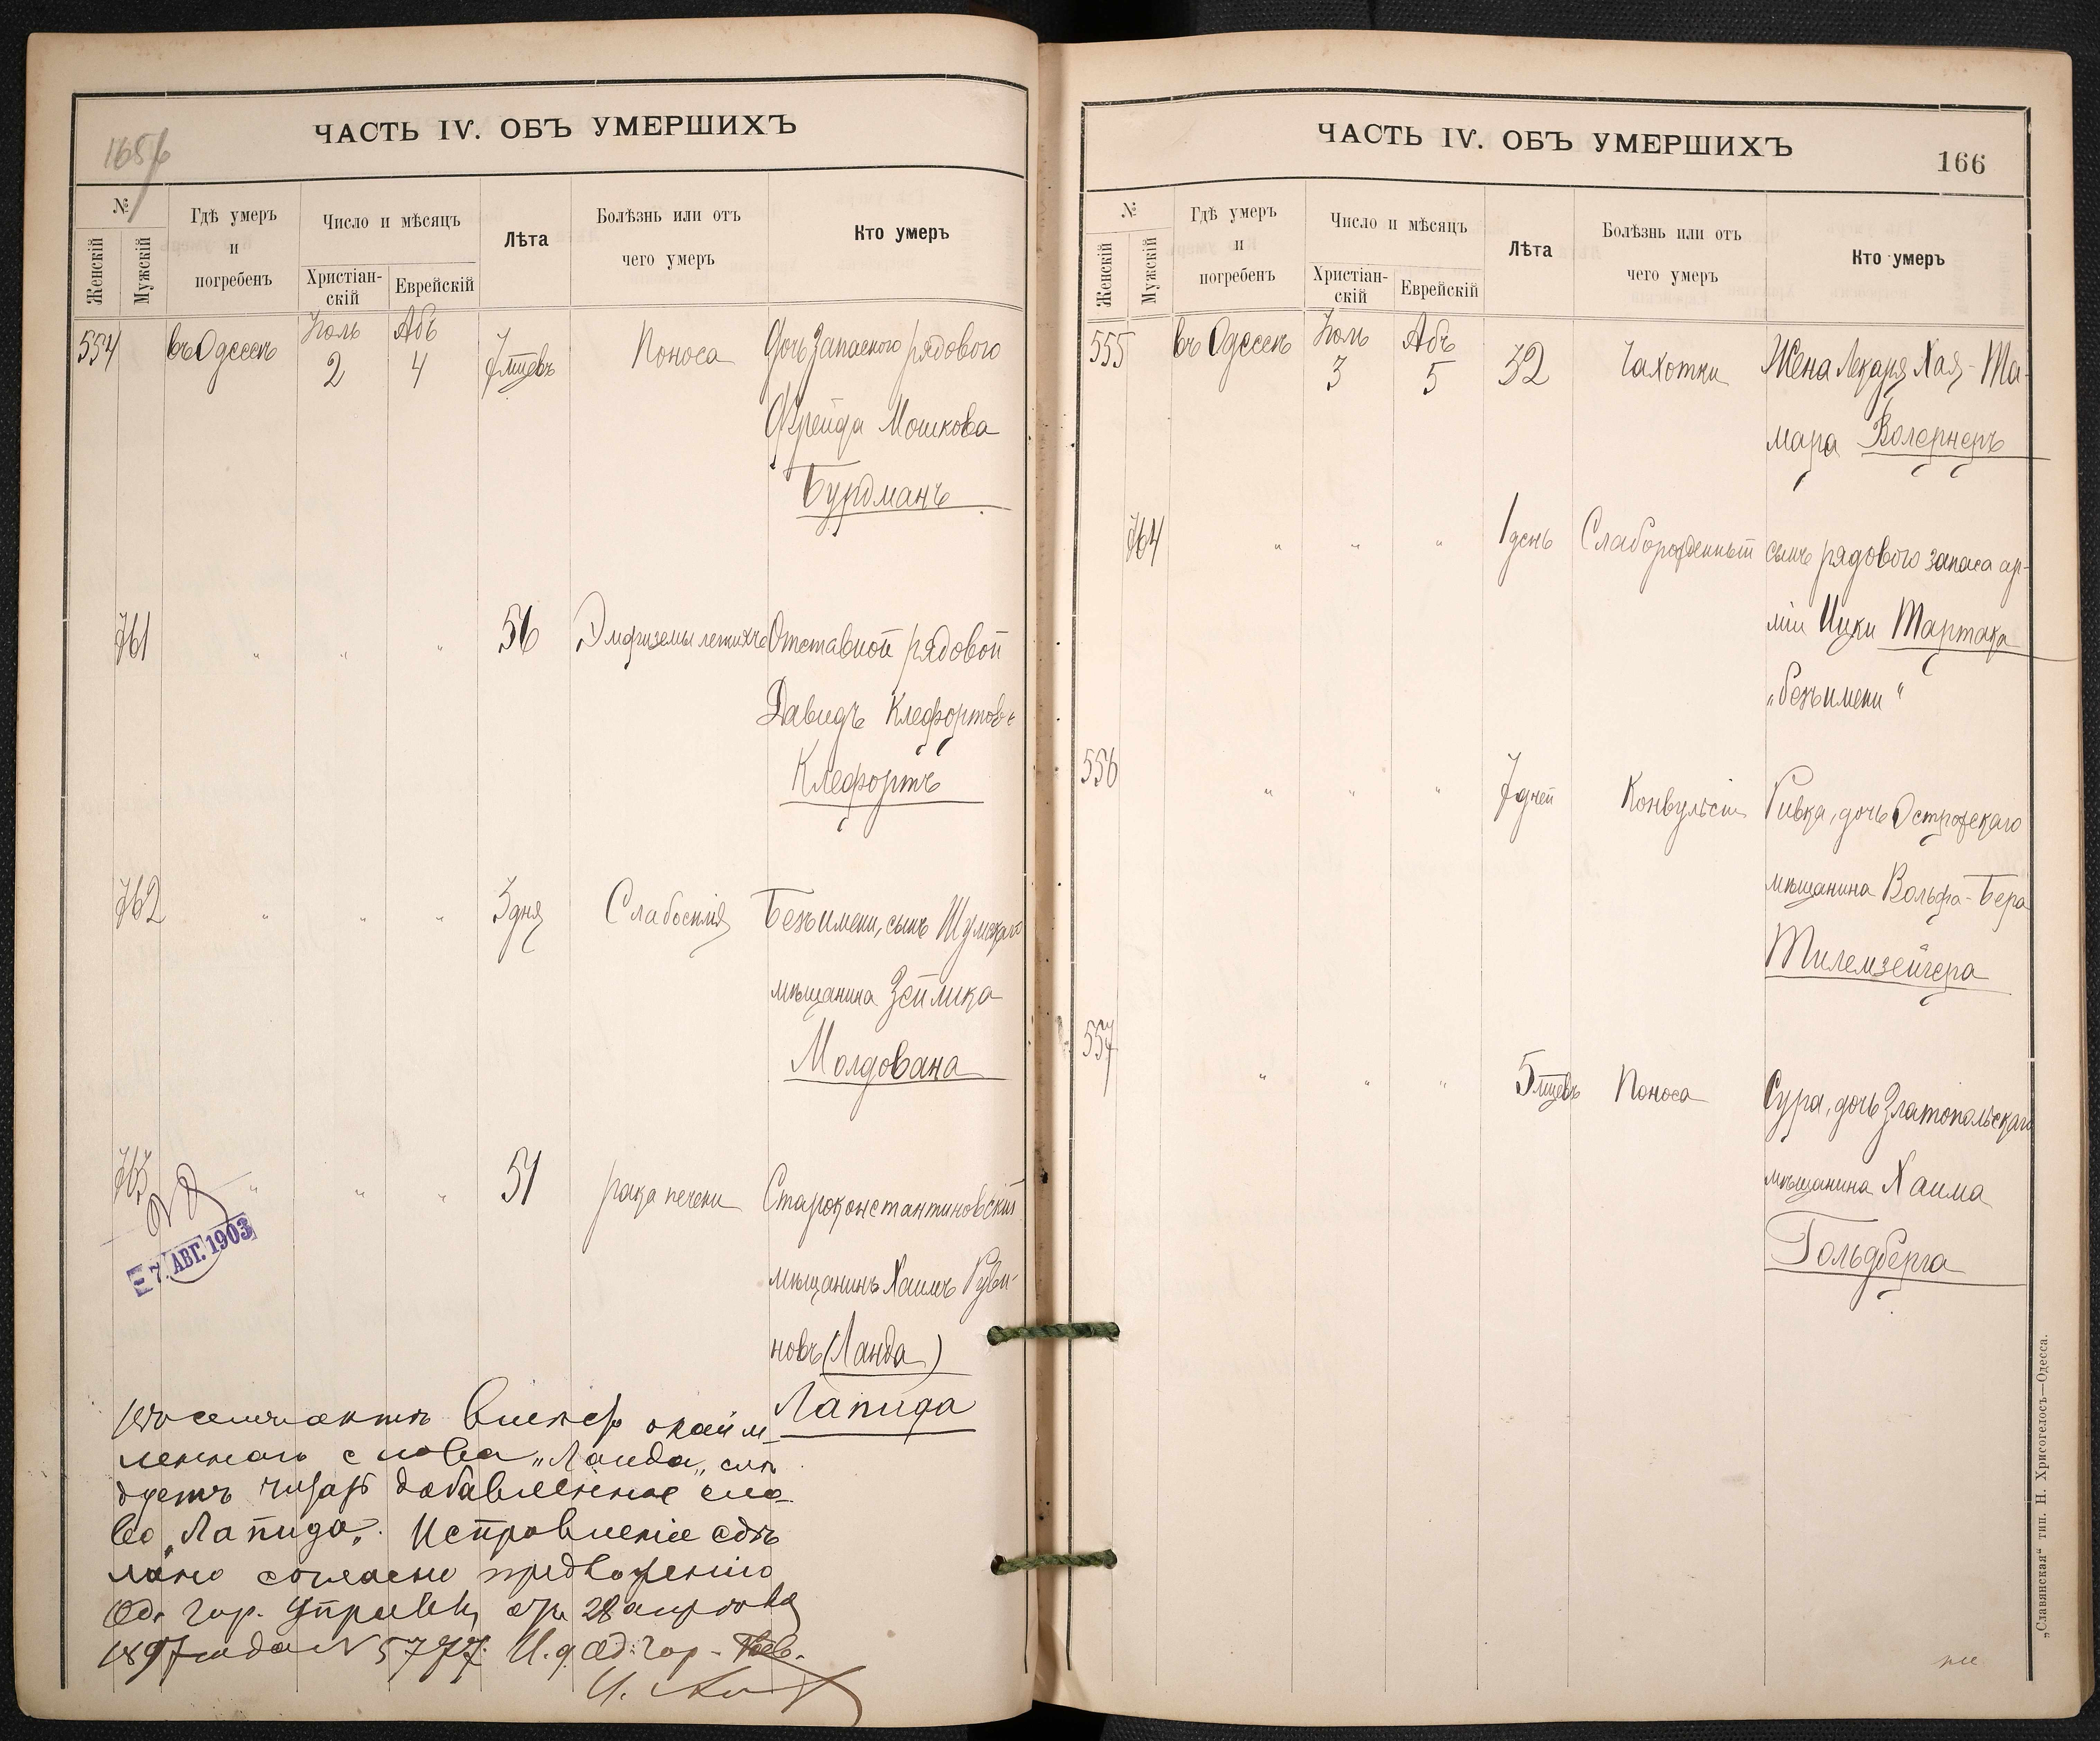 1656
ЧАСТЬ IV. ОБЪ УМЕРШИХЪ
№
Женскій
Мужскій
Гдѣ умеръ
и
погребенъ
Число и мѣсяцъ
Христіан-
скій
Еврейскій
Лѣта
Болѣзнь или отъ
чего умеръ
Кто умеръ
554 въ Одессѣ Іюль 2 Абъ 4 7 мцевъ Поноса Дочь запасного рядового
Фрейда Мошкова
Бурдманъ
761 " " " 56 Эмфиземы легкихъ Отставной рядовой
Давидъ Клефортовъ
Клефортъ
762 " " " 3 дня Слабосилія Безъ имени, сынъ Шумскаго
мѣщанина Зейлика
Молдована
763 " " " 51 рака печени Староконстантиновскій
мѣщанинъ Хаимъ Руви-
новъ (Ланда)
Лапида
7 АВГ. 1903
Въ семъ актѣ вмѣсто окайм-
леннаго слова „Ланда„ слѣ
дуетъ читать добавленное сло-
во „Лапида„. Исправленіе сдѣ
лано согласно предложенію
Од. Гор. Управы отъ 28
1897 года N 5777. И. д. Од. Гор. Рав.
ЧАСТЬ IV. ОБЪ УМЕРШИХЪ
166
№
Женскій
Мужскій
Гдѣ умеръ
и
погребенъ
Число и мѣсяцъ
Христіан-
скій
Еврейскій
Лѣта
Болѣзнь или отъ
чего умеръ
Кто умеръ
555 въ Одессѣ Іюль 3 Абъ 5 32 Чахотки Жена Лекаря Хая-Та-
мара Волернеръ
764 " " " 1 день Слаборожденный сынъ рядового запаса ар-
міи Ицки Тартака
„безъ имени"
556 " " " 7 дней Конвульсіи Ривка, дочь Острожскаго
мѣщанина Вольфа-Бера
Тилемзейгера
557 " " " 5 мцевъ Поноса Сура, дочь Златопольскаго
мѣщанина Хаима
Гольдберга
„Славянская" тип. Н. Хрисогелосъ—Одесса.